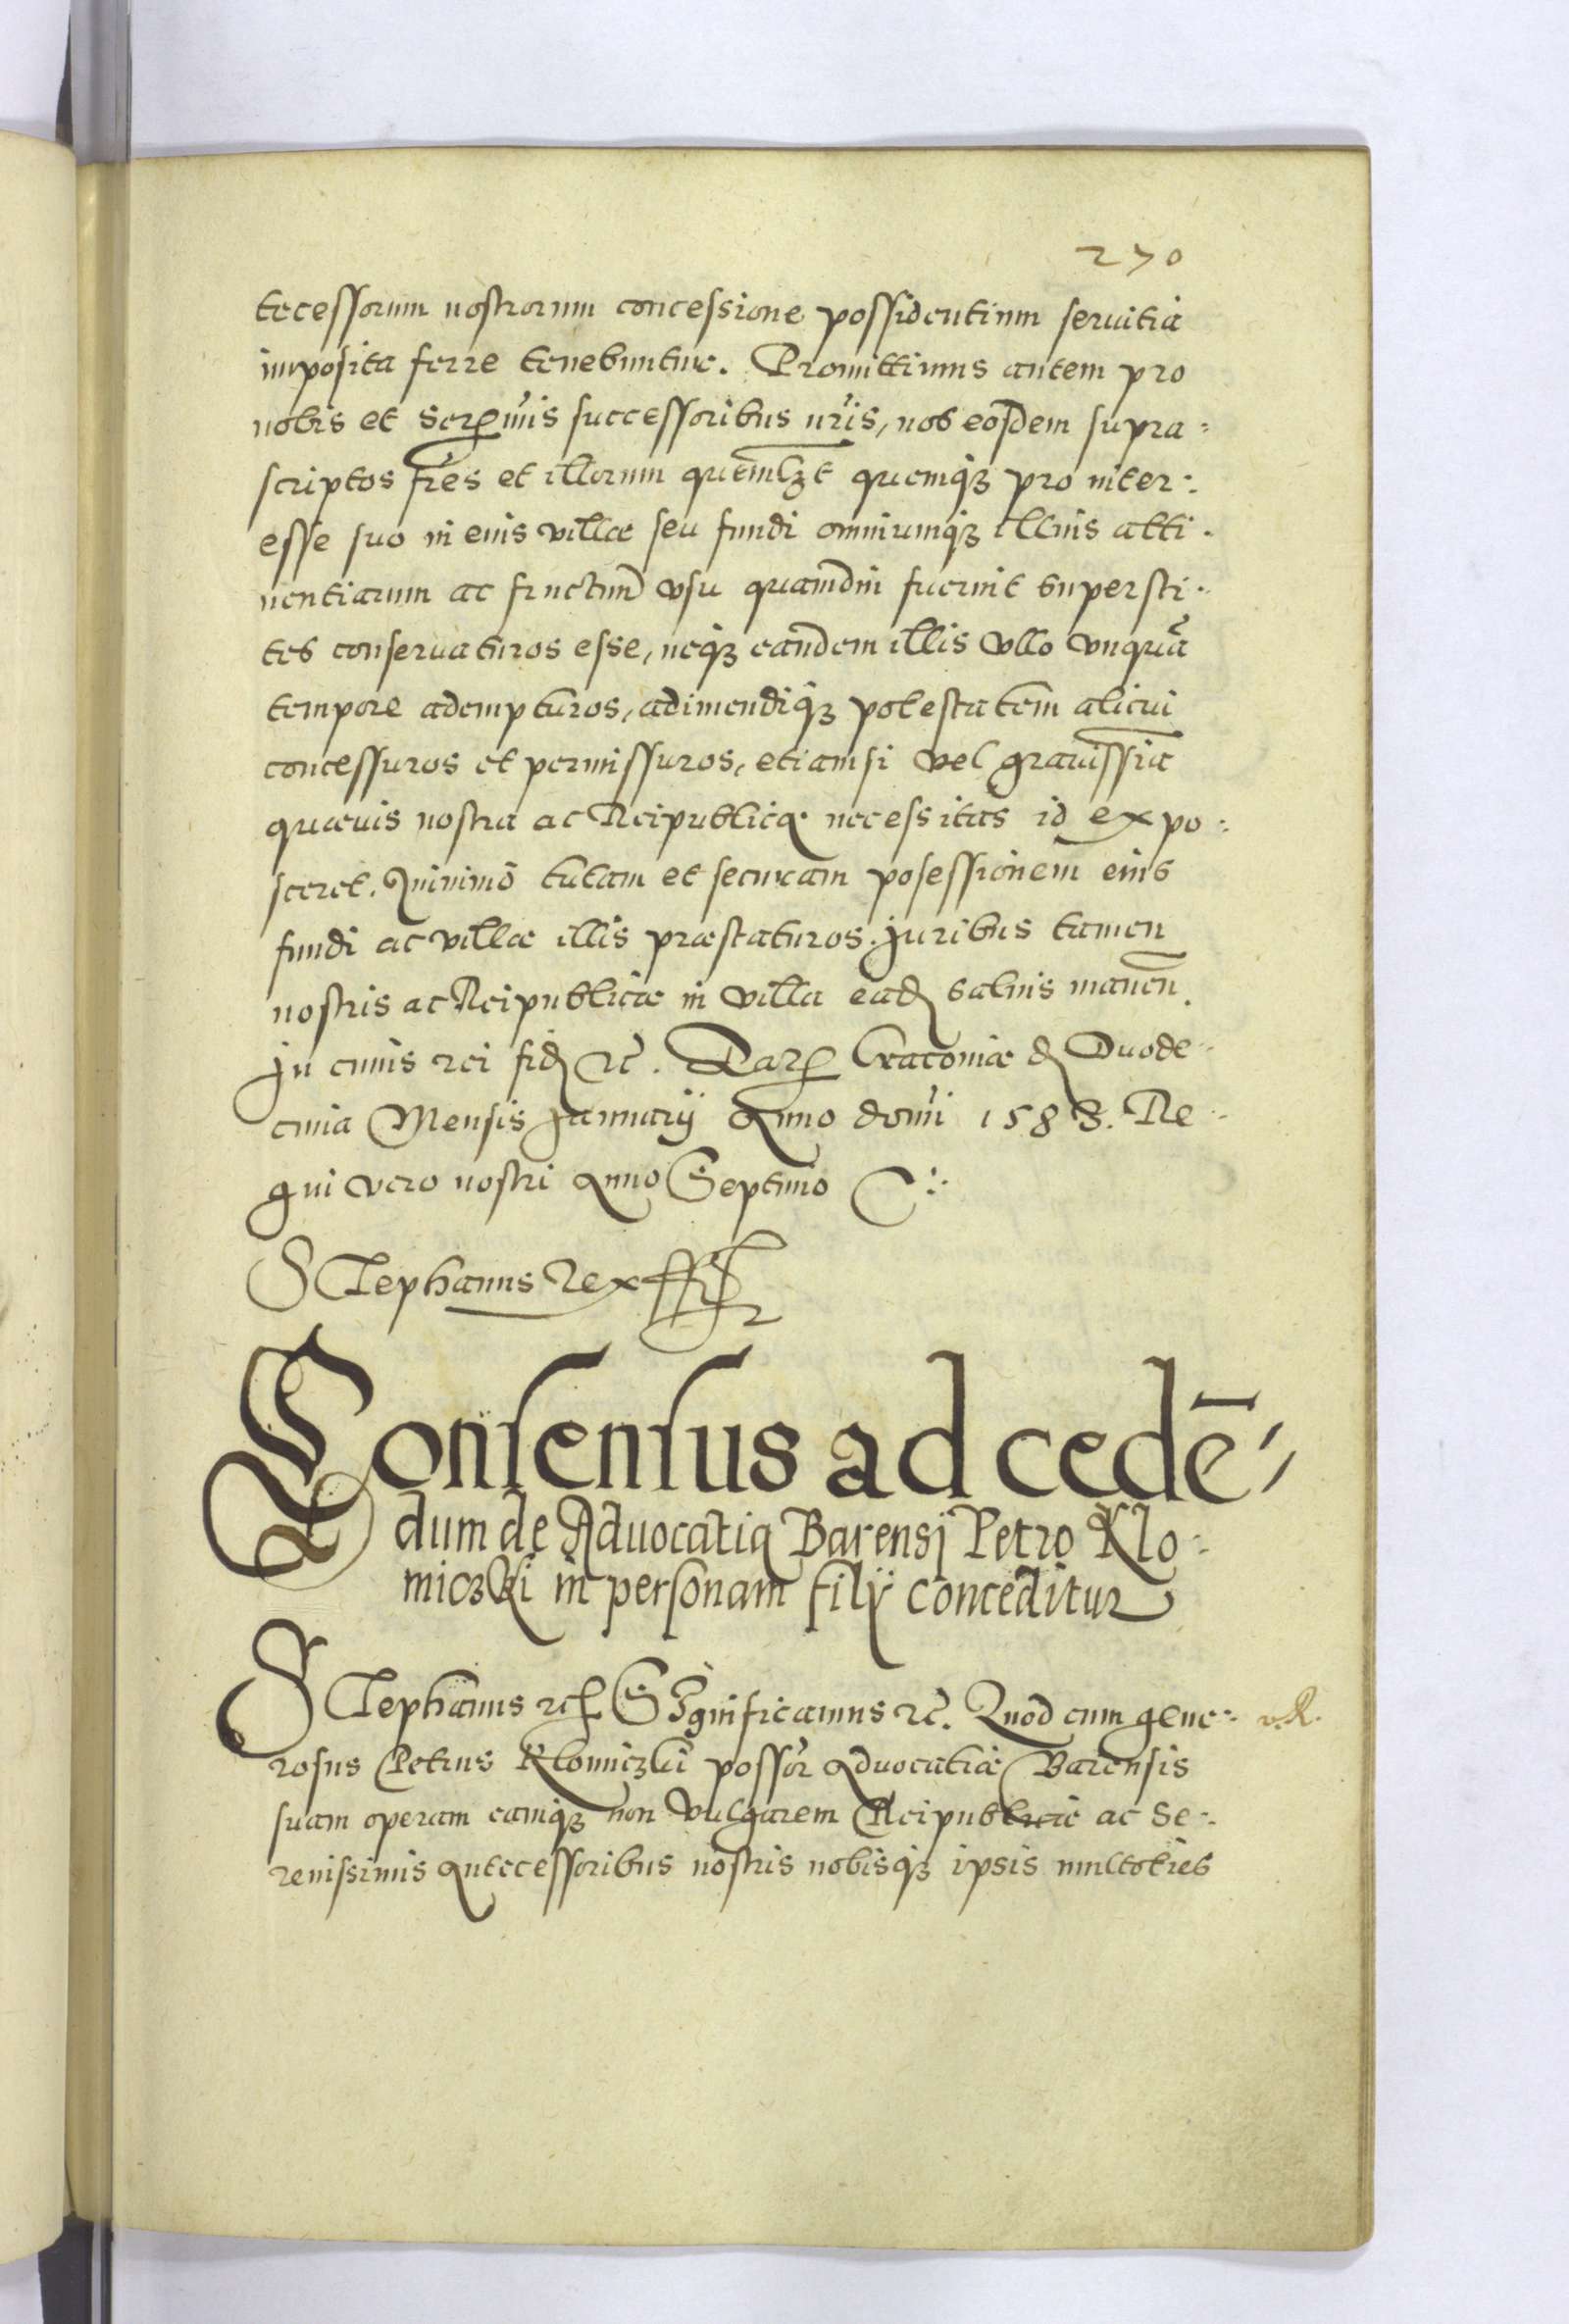 270
tecessorum nostrorum concessione possidentium seruitia
imposita ferre tenebuntur. Promittimus autem pro
nobis et Serenmis successoribus nr̃is, nos eosdem supra=
scriptos fr̃es et illorum quemlꝫt quemqꝫ pro inter=
esse suo in eius villae seu fundi omniumqꝫ illius atti=
nentiarum ac fructuum vsu quamdiu fuerint supersti=
tes conseruaturos esse, neqꝫ eandem illis vllo vnquã
tempore adempturos, adimendiqꝫ potestatem alicui
concessuros et permissuros, etiamsi vel grauissĩa
quaeuis nostra ac Reipublicæ necessitas id expo=
sceret. Quinimõ tutam et securam posessionem eius
fundi ac villae illis præstaturos. Juribus tamen
nostris ac Reipublicæ in villa ead saluis maneñ.
Jn cuius rei fid etc̃. Dat Cracouiæ d Duode=
cima Mensis Januarij Anno domĩ 1583. Re=
gni vero nostri Anno Septimo
Stephanus Rex
Consensus ad cedẽ=
dum de Aduocatia Barensi Petro Klo=
miczki in personam filÿ conceditur
Stephanus etc Significamus etc̃. Quod cum gene=
rosus Petrus Klomiczki possor̃ Aduocatiæ Barensis
suam operam eamqꝫ non vulgarem Reipublicæ ac Se=
renissimis Antecessoribus nostris nobisqꝫ ipsis multoties